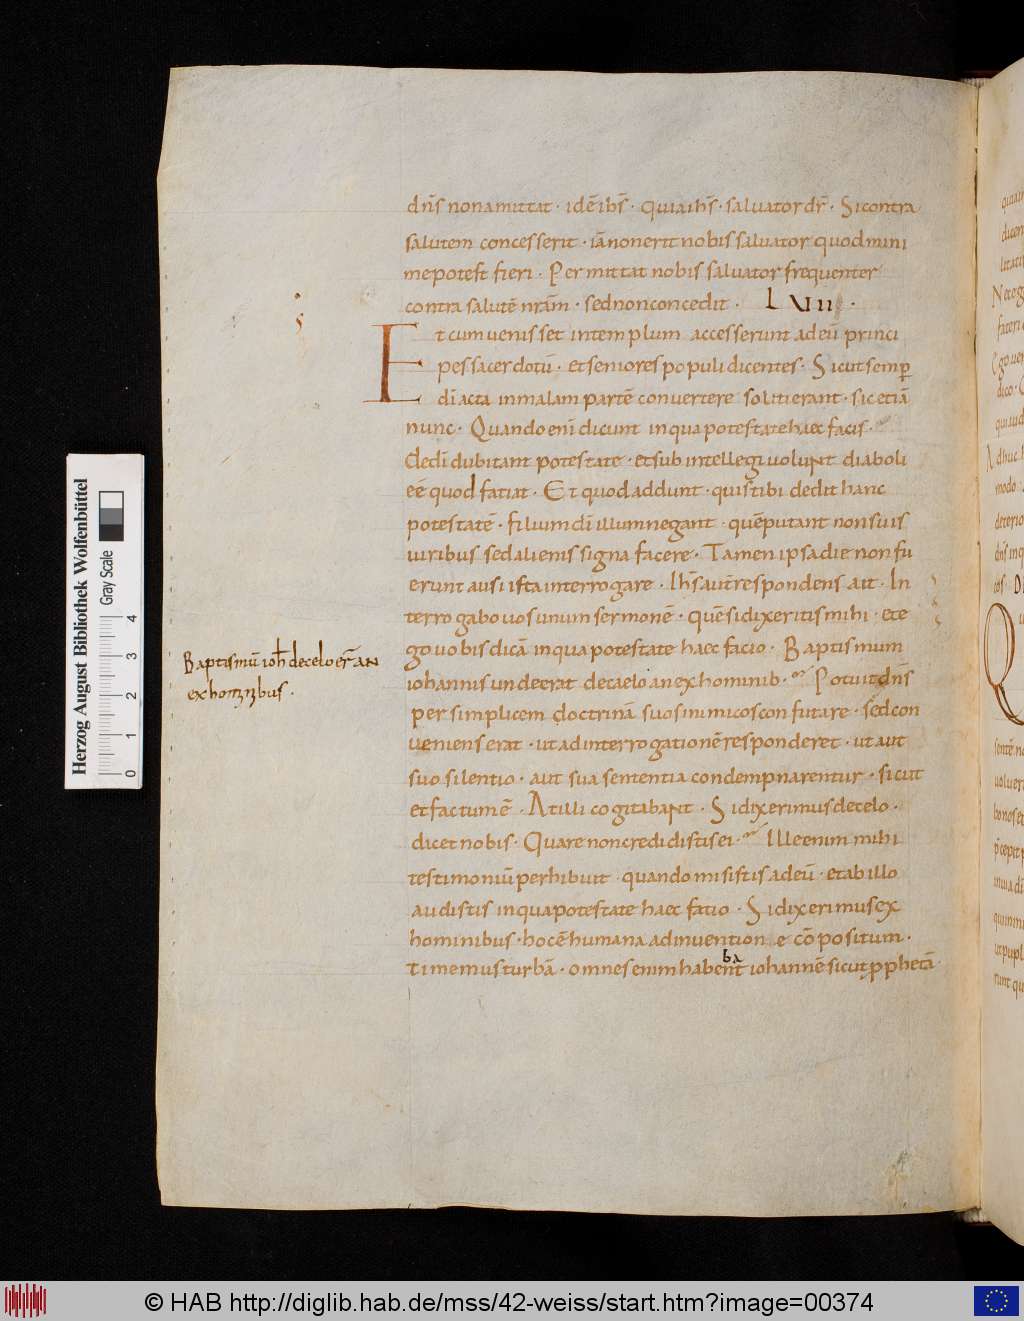 dn̄s non amittat · idē ihs̄ · quia ihs̄ · saluator dr̄ · Si contra
salutem concesserit · iā non erit nobis saluator quod mini
me potest fieri · Permittat nobis saluator frequenter
contra salutē nrām · sed non concedit · LVII ·
Et cum uenisset in templum accesserunt ad eū princi
pes sacerdotū · et seniores populi dicentes · Sicut semp̄
dī acta in malam partē conuertere soliti erant · sic etiā
nunc · Quando enī dicunt in qua potestate haec facis ·
de dī dubitant potestate · et subintellegi uolunt diaboli
eē quod fatiat · Et quod addunt · quis tibi dedit hanc
potestatē · filium dī illum negant · quē putant non suis
uiribus sed alienis signa facere · Tamen ipsa die non fu
erunt ausi ista interrogare · Ihs̄ aut̄ respondens ait · In
terrogabo uos unum sermonē · quē si dixeritis mihi · et e
go uobis dicā in qua potestate haec facio · Baptismum
iohannis unde erat de caelo an ex hominib · Potuit dn̄s
per simplicem doctrinā suos inimicos confutare · sed con
ueniens erat · ut ad interrogationē responderet · ut aut
suo silentio · aut sua sententia condempnarentur · sicut
et factum ē · At illi cogitabant · Si dixerimus de celo ·
dicet nobis · Quare non credidistis ei · Ille enim mihi
testimoniū perhibuit · quando misistis ad eū · et ab illo
audistis in qua potestate haec fatio · Si dixerimus ex
hominibus · hoc ē humana adinuentione cōpositum ·
ba
timemus turbā · omnes enim habent iohannē sicut pphetā ·
Baptismū ioh̄ de celo er̄ an
ex hominibus ·
Herzog August Bibliothek Wolfenbüttel
Gray Scale
0 1 2 3 4
© HAB http://diglib.hab.de/mss/42-weiss/start.htm?image=00374